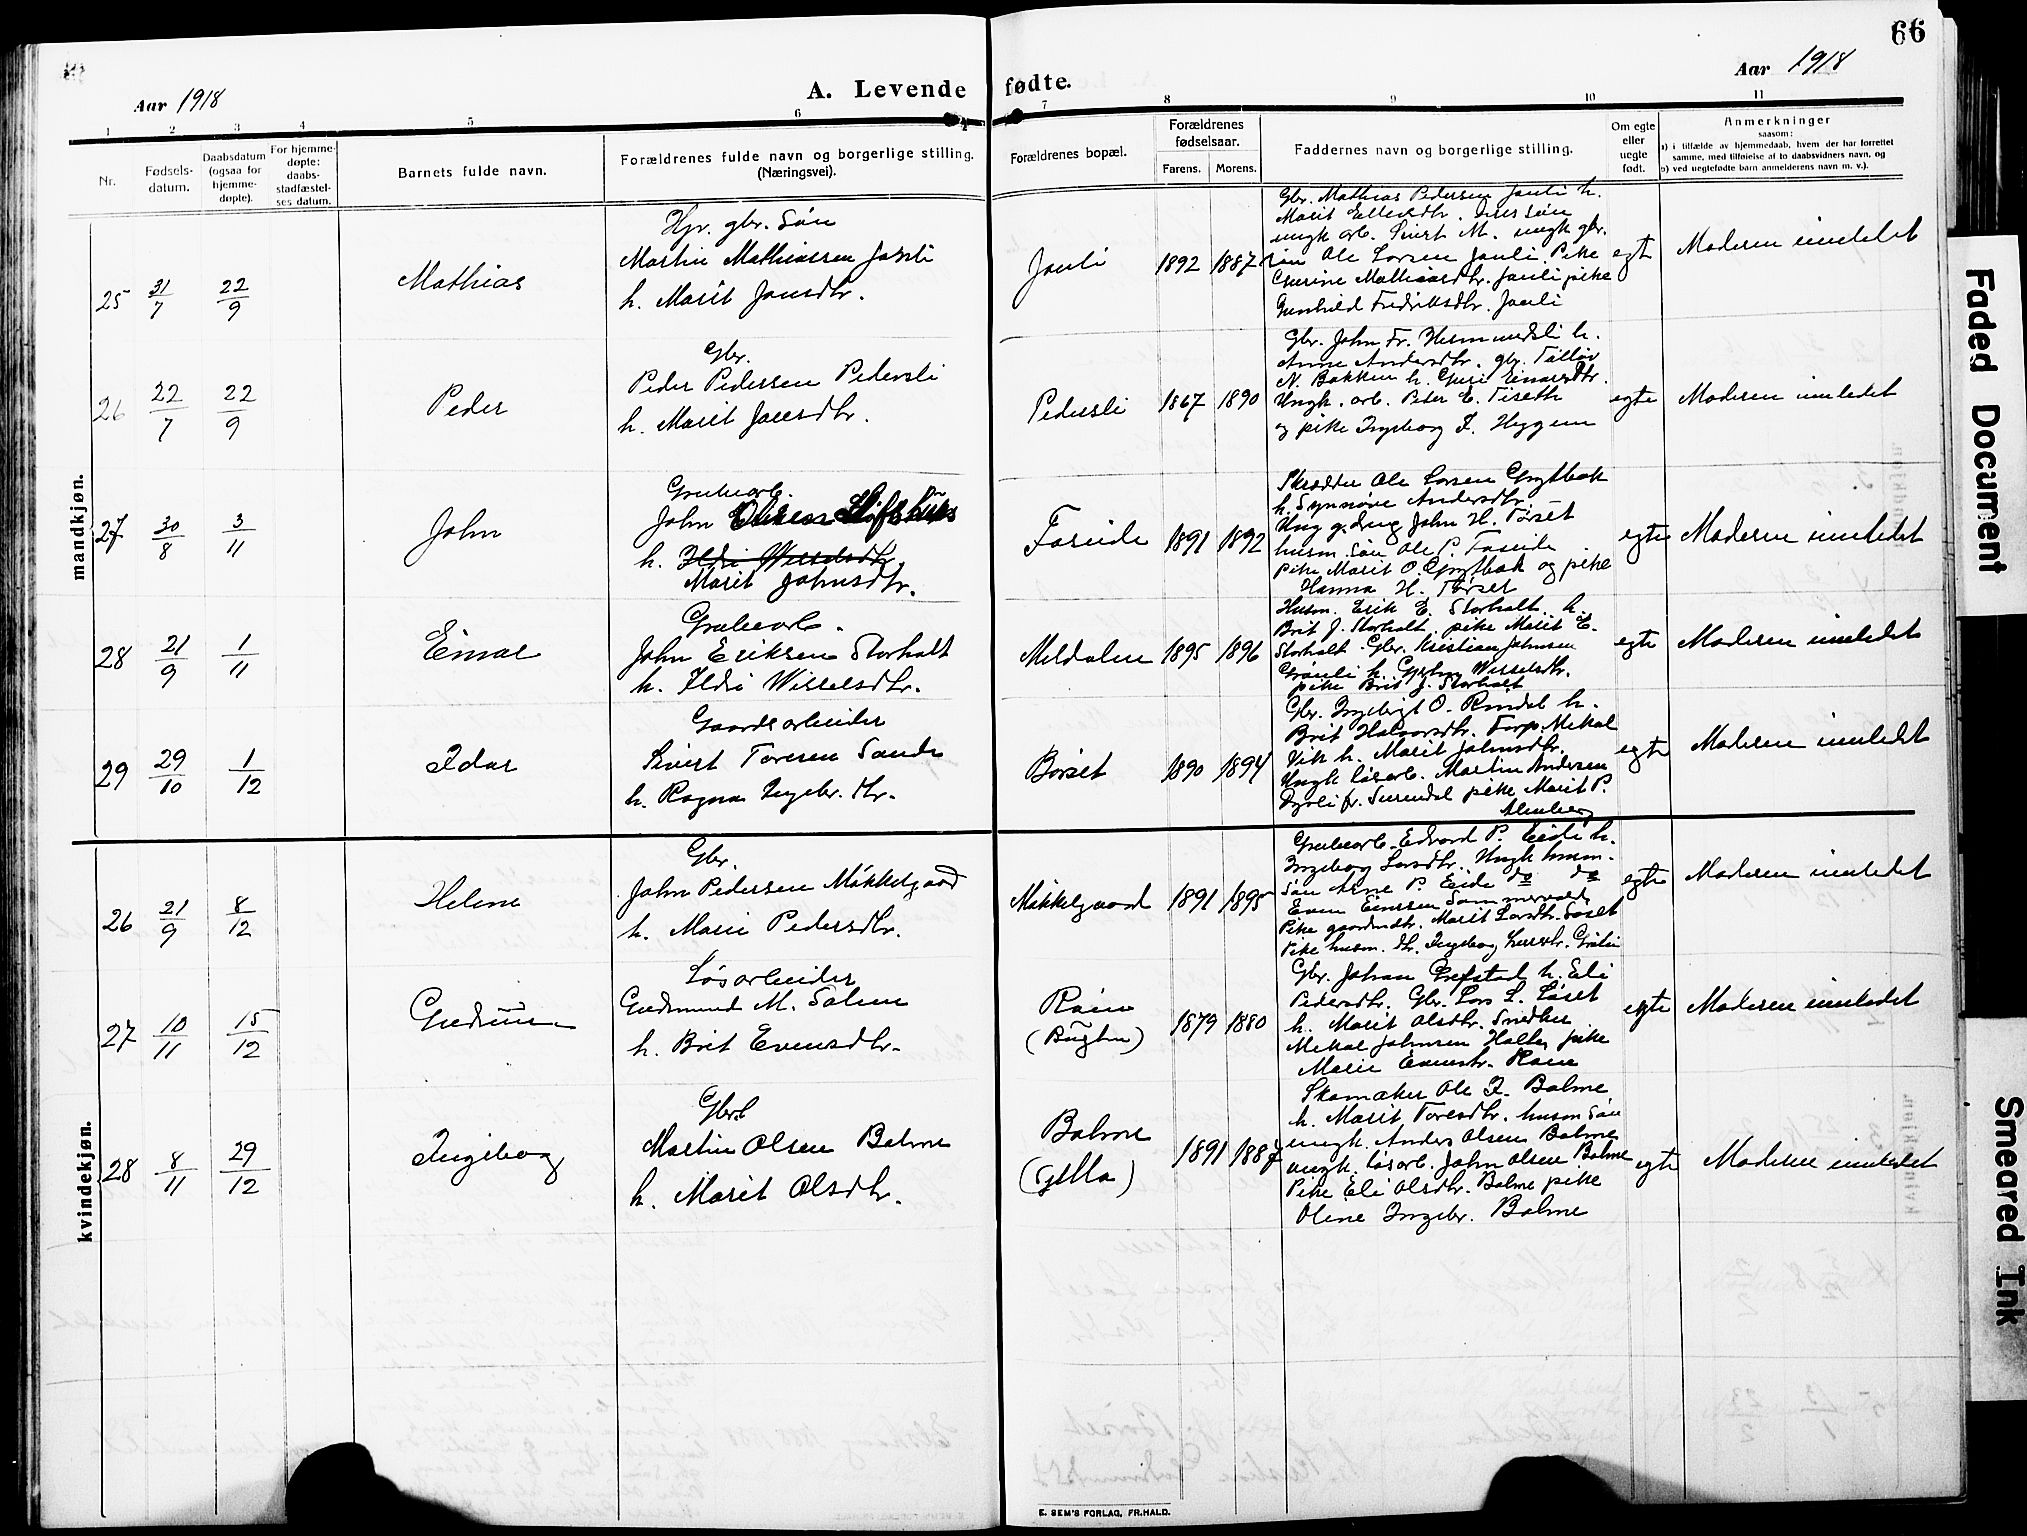 66
Aar 1918
A. Levende fødte.
Aar 1918
1 2 3 4 5 6 7 8 9 10 11
Nr.
Fødsels-
datum.
Daabsdatum
(ogsaa for
hjemme-
døpte).
For hjemme-
døpte:
daabs-
stadfæstel-
ses datum.
Barnets fulde navn.
Forældrenes fulde navn og borgerlige stilling.
(Næringsvei).
Forældrenes bopæl.
Forældrenes
fødselsaar.
Farens. Morens.
Faddernes navn og borgerlige stilling.
Om egte
eller
uegte
født.
Anmerkninger
saasom:
a) i tilfælde av hjemmedaab, hvem der har forrettet
samme, med tilføielse af to daabsvidners navn, og
b) ved uegtefødte barn anmelderens navn m. v.).
mandkjøn.
25 31/7 22/9 Mathias
Hjr. gbr. Søn
Martin Mathiassen Jauli
h. Marit Jonsdtr.
Jauli 1892 1887
Gbr. Mathias Pedersen Jauli h.
Marit Ellevsdtr.
ungk. arb. Sivert M. ungk. gbr.
søn Ole Larsen Jauli. Pike
Gurine Mathiasdtr. Jauli pike
Gunhild Fredriksdtr. Jauli
egte Moderen innledet
26 22/7 22/9 Peder
Gbr.
Peder Pedersen Pedersli
h. Marit Jonsdtr.
Pedersli 1867 1890
Gbr. John Fr. Hermundsli h.
Anne Andersdtr. gbr. Tølløv
N. Bakken h. Guri Einarsdtr.
Ungk. arb. Peter E. Tiseth
og pike Ingeborg I. Heggem
egte Moderen innledet
27 30/8 3/11 John
Grubearb.
John
h. Ildri Wisselsdtr.
Marit Johnsdtr.
Foseide 1891 1892
Skrædder Ole Larsen Grytbak
h. Synnøve Andersdtr.
Ung g.dreng John H. Tørset
husm. søn Ole P. Foseide
pike Marit O. Grytbak og pike
Hanna H. Tørset
egte Moderen innledet
28 21/9 1/11 Einar
Grubearb.
John Eriksen Storholt
h. Ildri Wisselsdtr.
Meldalen 1895 1896
Husm. Erik E. Storholt h.
Brit J. Storholt, pike Marit E.
Storholt. Gbr. Kristian Johnsen
Grønli h. Gjertru Wisselsdtr.
pike Brit J. Storholt
egte Moderen innledet
29 29/10 1/12 Idar
Gaardsarbeider
Sivert Toresen Sande
h. Ragna Ingebr. dtr.
Børset 1890 1894
Gbr. Ingebrigt O. Rindal h.
Brit Halvorsdtr. Forp. Mekal
Vik h. Marit Johnsdtr.
Ungk. løsarb. Martin Andersen
fr. Surendal pike Marit P.
egte Moderen innledet
kvindekjøn.
26 21/9 8/12 Helene
Gbr.
John Pedersen Mikkelgaard
h. Marie Pedersdtr.
Mikkelgaard 1891 1895
Grubearb. Edvard P. Eide h.
Ingeborg Larsdtr. Ungk. husm.
søn Arne P. Eide do do
Even Einersen Sommervold
Pike gaardmdtr. Marit Larsdtr. Sæset
Pike husm. dtr. Ingeborg Grøli
egte Moderen innledet
27 10/11 15/12 Gudrun
Løsarbeider
Gudmund M. Solem
h. Brit Evensdtr.
Røen
(Bugten)
1879 1880
Gbr. Johan Grefstad h. Eli
Pedersdtr. Gbr. Lars L. Løset
h. Marit Olsdtr. Snedker
Mekal Johnsen Holten, pike
Marie Evensdtr. Røen
egte Moderen innledet
28 8/11 29/12 Ingeborg
Gbr.
Martin Olsen Bolme
h. Marit Olsdtr.
Bolme
1891 1887
Skomaker Ole I. Bolme
h. Marit Toresdtr. husm. søn
ungk. Anders Olsen Bolme
ungk. løsarb. John Olsen Bolme
Pike Eli Olsdtr. Bolme pike
Oline Ingebr. Bolme
egte Moderen innledet
E. SEM'S FORLAG, FR.HALD.
Faded Document
Smeared Ink